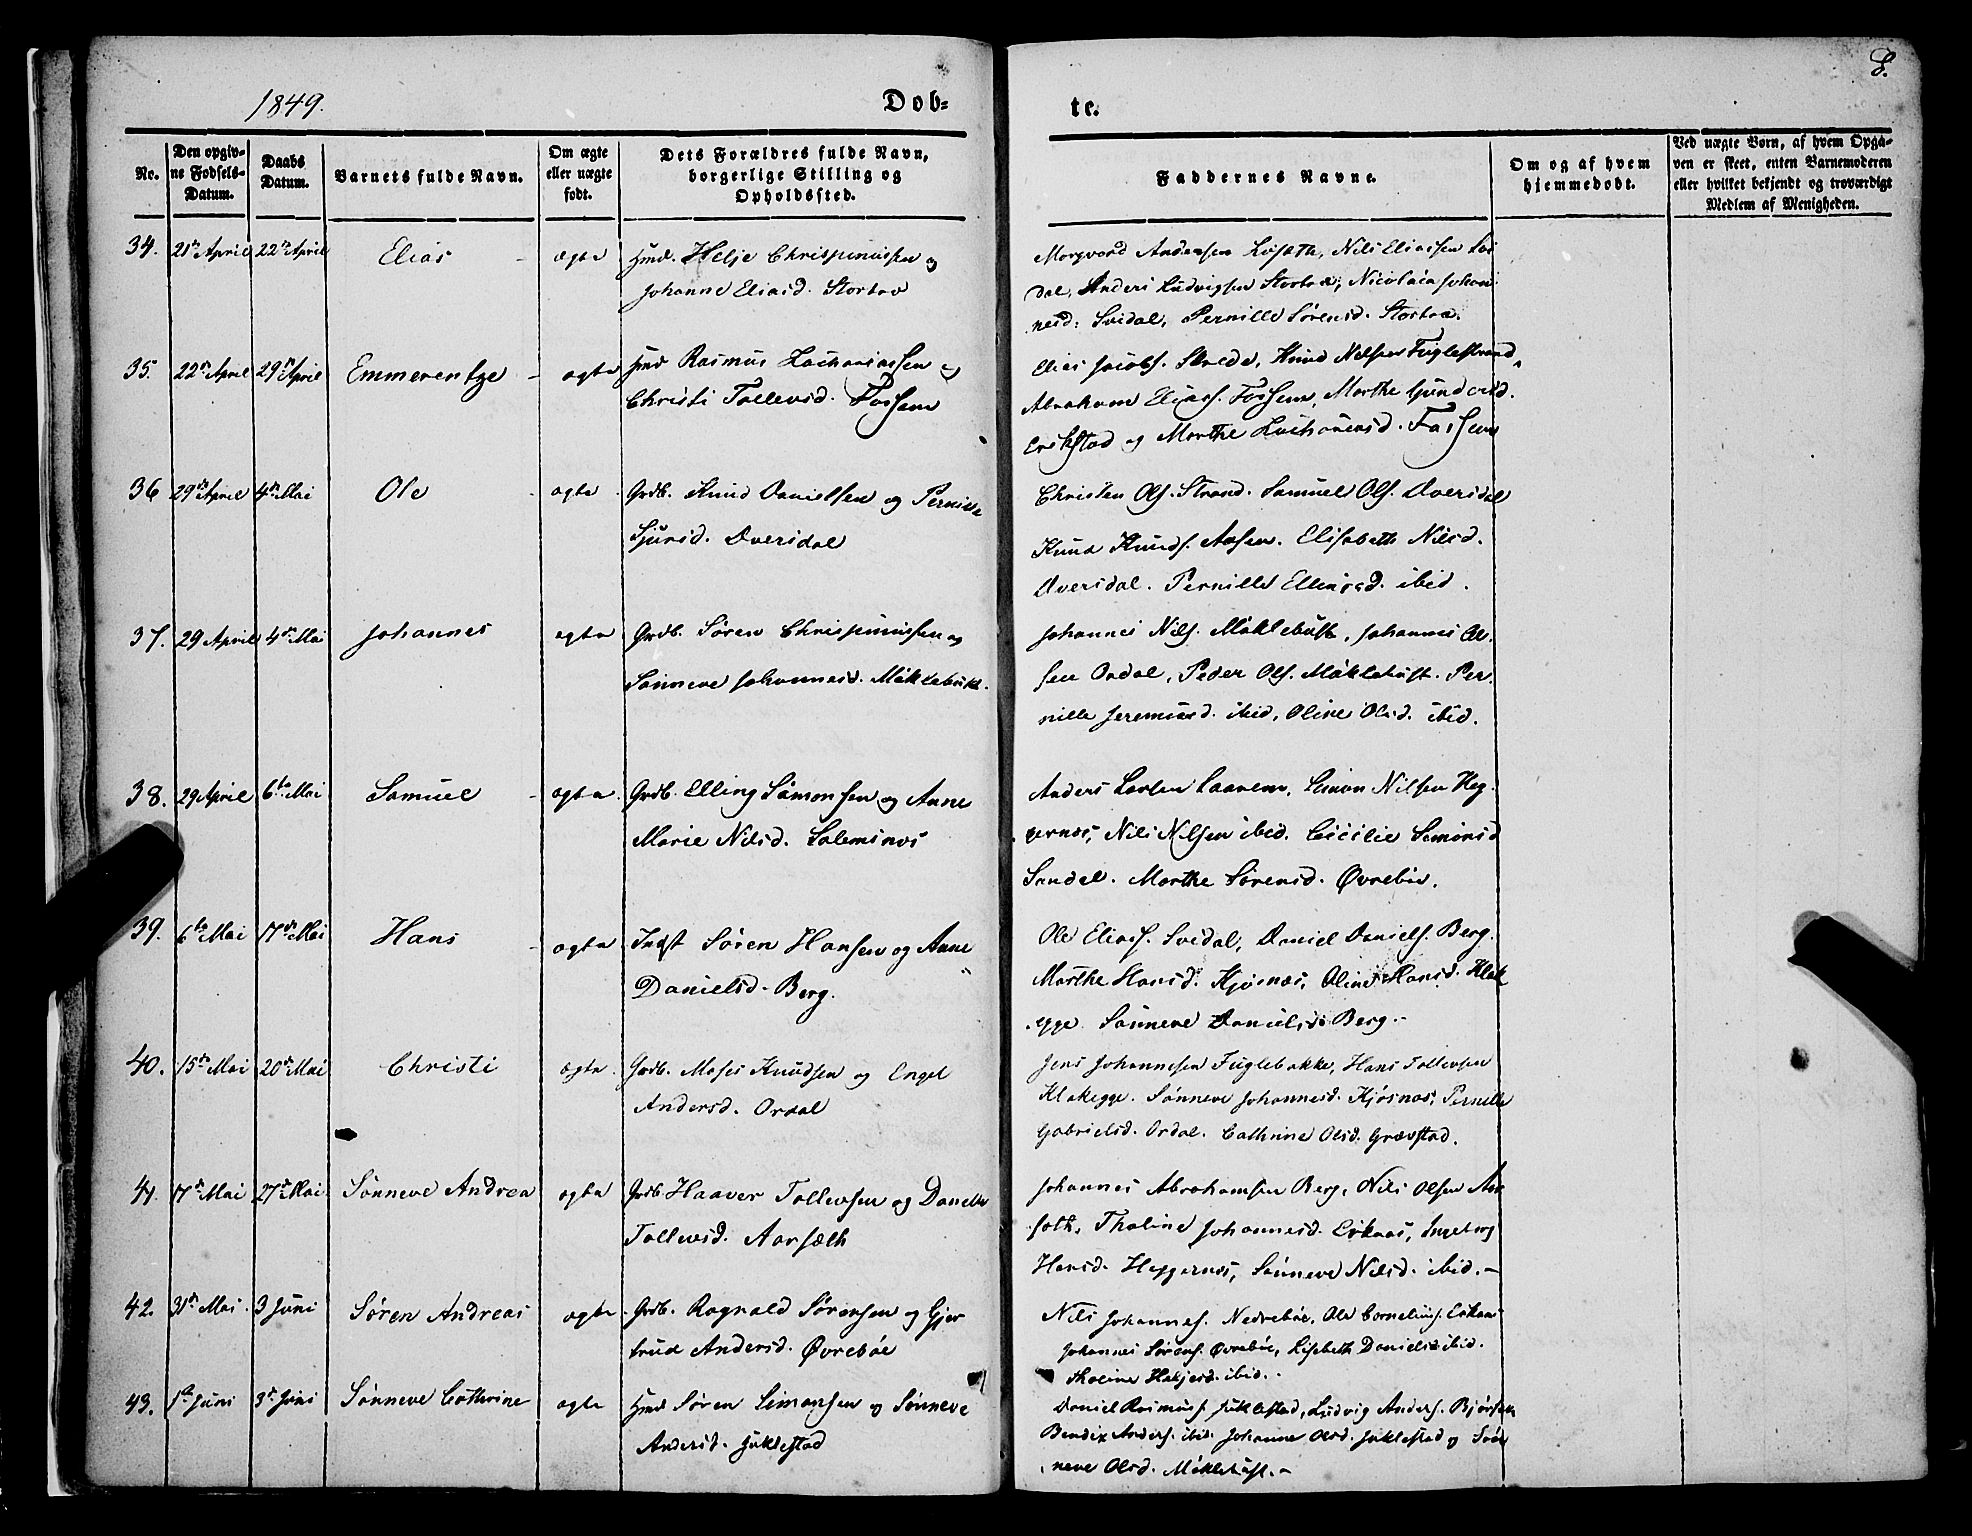 8.
1849. Dob= te.
No. Den opgiv= ne Fødsels= Datum. Daabs Datum. Barnets fulde Navn. Om ægte eller uægte født. Dets Forældres fulde Navn, borgerlige Stilling og Opholdssted. Faddernes Navne. Om og af hvem hjemmedøbt. Ved uægte Børn, af hvem Opga= ven er skeet, enten Barnemoderen eller hvilket bekjendt og troværdigt Medlem af Menigheden.
34. 21de April 22de April Elias ægte Hmd. Helje Chrispinussen og
Johanne Eliasd. Stortov
Andersen Nils Eliassen Svi
dal, Anders Ludvigsen Nicolaia Johan
nesd: Svidal, Pernille Sørensd.
35. 22de April 29de April Emmerentze ægte Hmd Rasmus Zachariassen og
Christi Tollevsd. Fossem
Elias Jacobs. Skrede, Knud Nilsen Fuglestrand
Abraham Eliass. Fossem, Marthe
Erikstad og Marthe Fossem
36 29de April 4de Mai Ole ægte Grdb. Knud Danielsen og Pernille
Sjursd. Dversdal
Christen Ols. Strand. Samuel Ols. Dversdal
Knud Knuds. Aasen. Elisabeth Nilsd.
Dversdal. Pernille ibid.
37. 29 April 4de Mai Johannes ægte Grdb. Søren Chrispinussen og
Sønneve Johannesd. Møklebust.
Johannes Nils. Møklebust, Johannes Ol-
sen Ordal, Peder Ols. Møklebust. Per-
nille Jeremiasd. ibid, Oline Olsd. ibid.
38. 29 April 6te Mai Samuel ægte Grdb. Elling Simonsen og Anne
Marie Nilsd. Solemsnes
Anders Larsen Simon Nilsen Heg-
gernæs, Nils Nilsen ibid. Cicilie Simonsd
Sandal. Marthe Sørensd. Øvrebøe.
39. 6te Mai 17de Mai Hans ægte Indst Søren Hansen og Anne
Danielsd. Berg.
Ole Eliass. Svidal, Daniel Daniels. Berg.
Marthe Hansd. Kjøsnæs, Oline Hansd. Klak
egge Sønneve Danielsd: Berg.-
40. 15de Mai 20de Mai Christi ægte Grdb. Moses Knudsen og Engel
Andersd. Ordal
Jens Johannesen Fuglebakke, Hans Tollevsen
Klakegge. Sønneve Johannesd. Kjøsnæs, Pernille
Gabrielsd. Ordal. Cathrine Olsd. Grævstad.
41. 17de Mai 27de Mai Sønneve Andrea ægte Grdb. Haaver Tollevsen og Danelle
Tollevsd. Aarsæth
Johannes Abrahamsen Berg, Nils Olsen Aar
sæth, Thaline Johannesd. Eikaas, Ingeborg
Hansd. Heggernæs, Sønneve Nilsd. ibid.-
42. 31de Mai 3 Juni Søren Andreas ægte Grdb. Ragnald Sørensen og Gjer
trud Andersd. Øvrebøe
Nils Johanness. Nedrebøe, Ole Corneliuss. Eikaas
Johannes Sørens. Øvrebøe, Lisbeth Danielsd ibid.
Thaline Heljesd. ibid.
43. 1ste Juni 3de Juni Sønneve Cathrine ægte Hmd Søren Simonsen og Sønneve
Andersd. Juklestad
Daniel Rasmuss. Juklestad, Ludvig Anders.
Bendix Anders. ibid. Johanne Olsd. Juklestad og Søn
neve Olsd. Møklebust.-